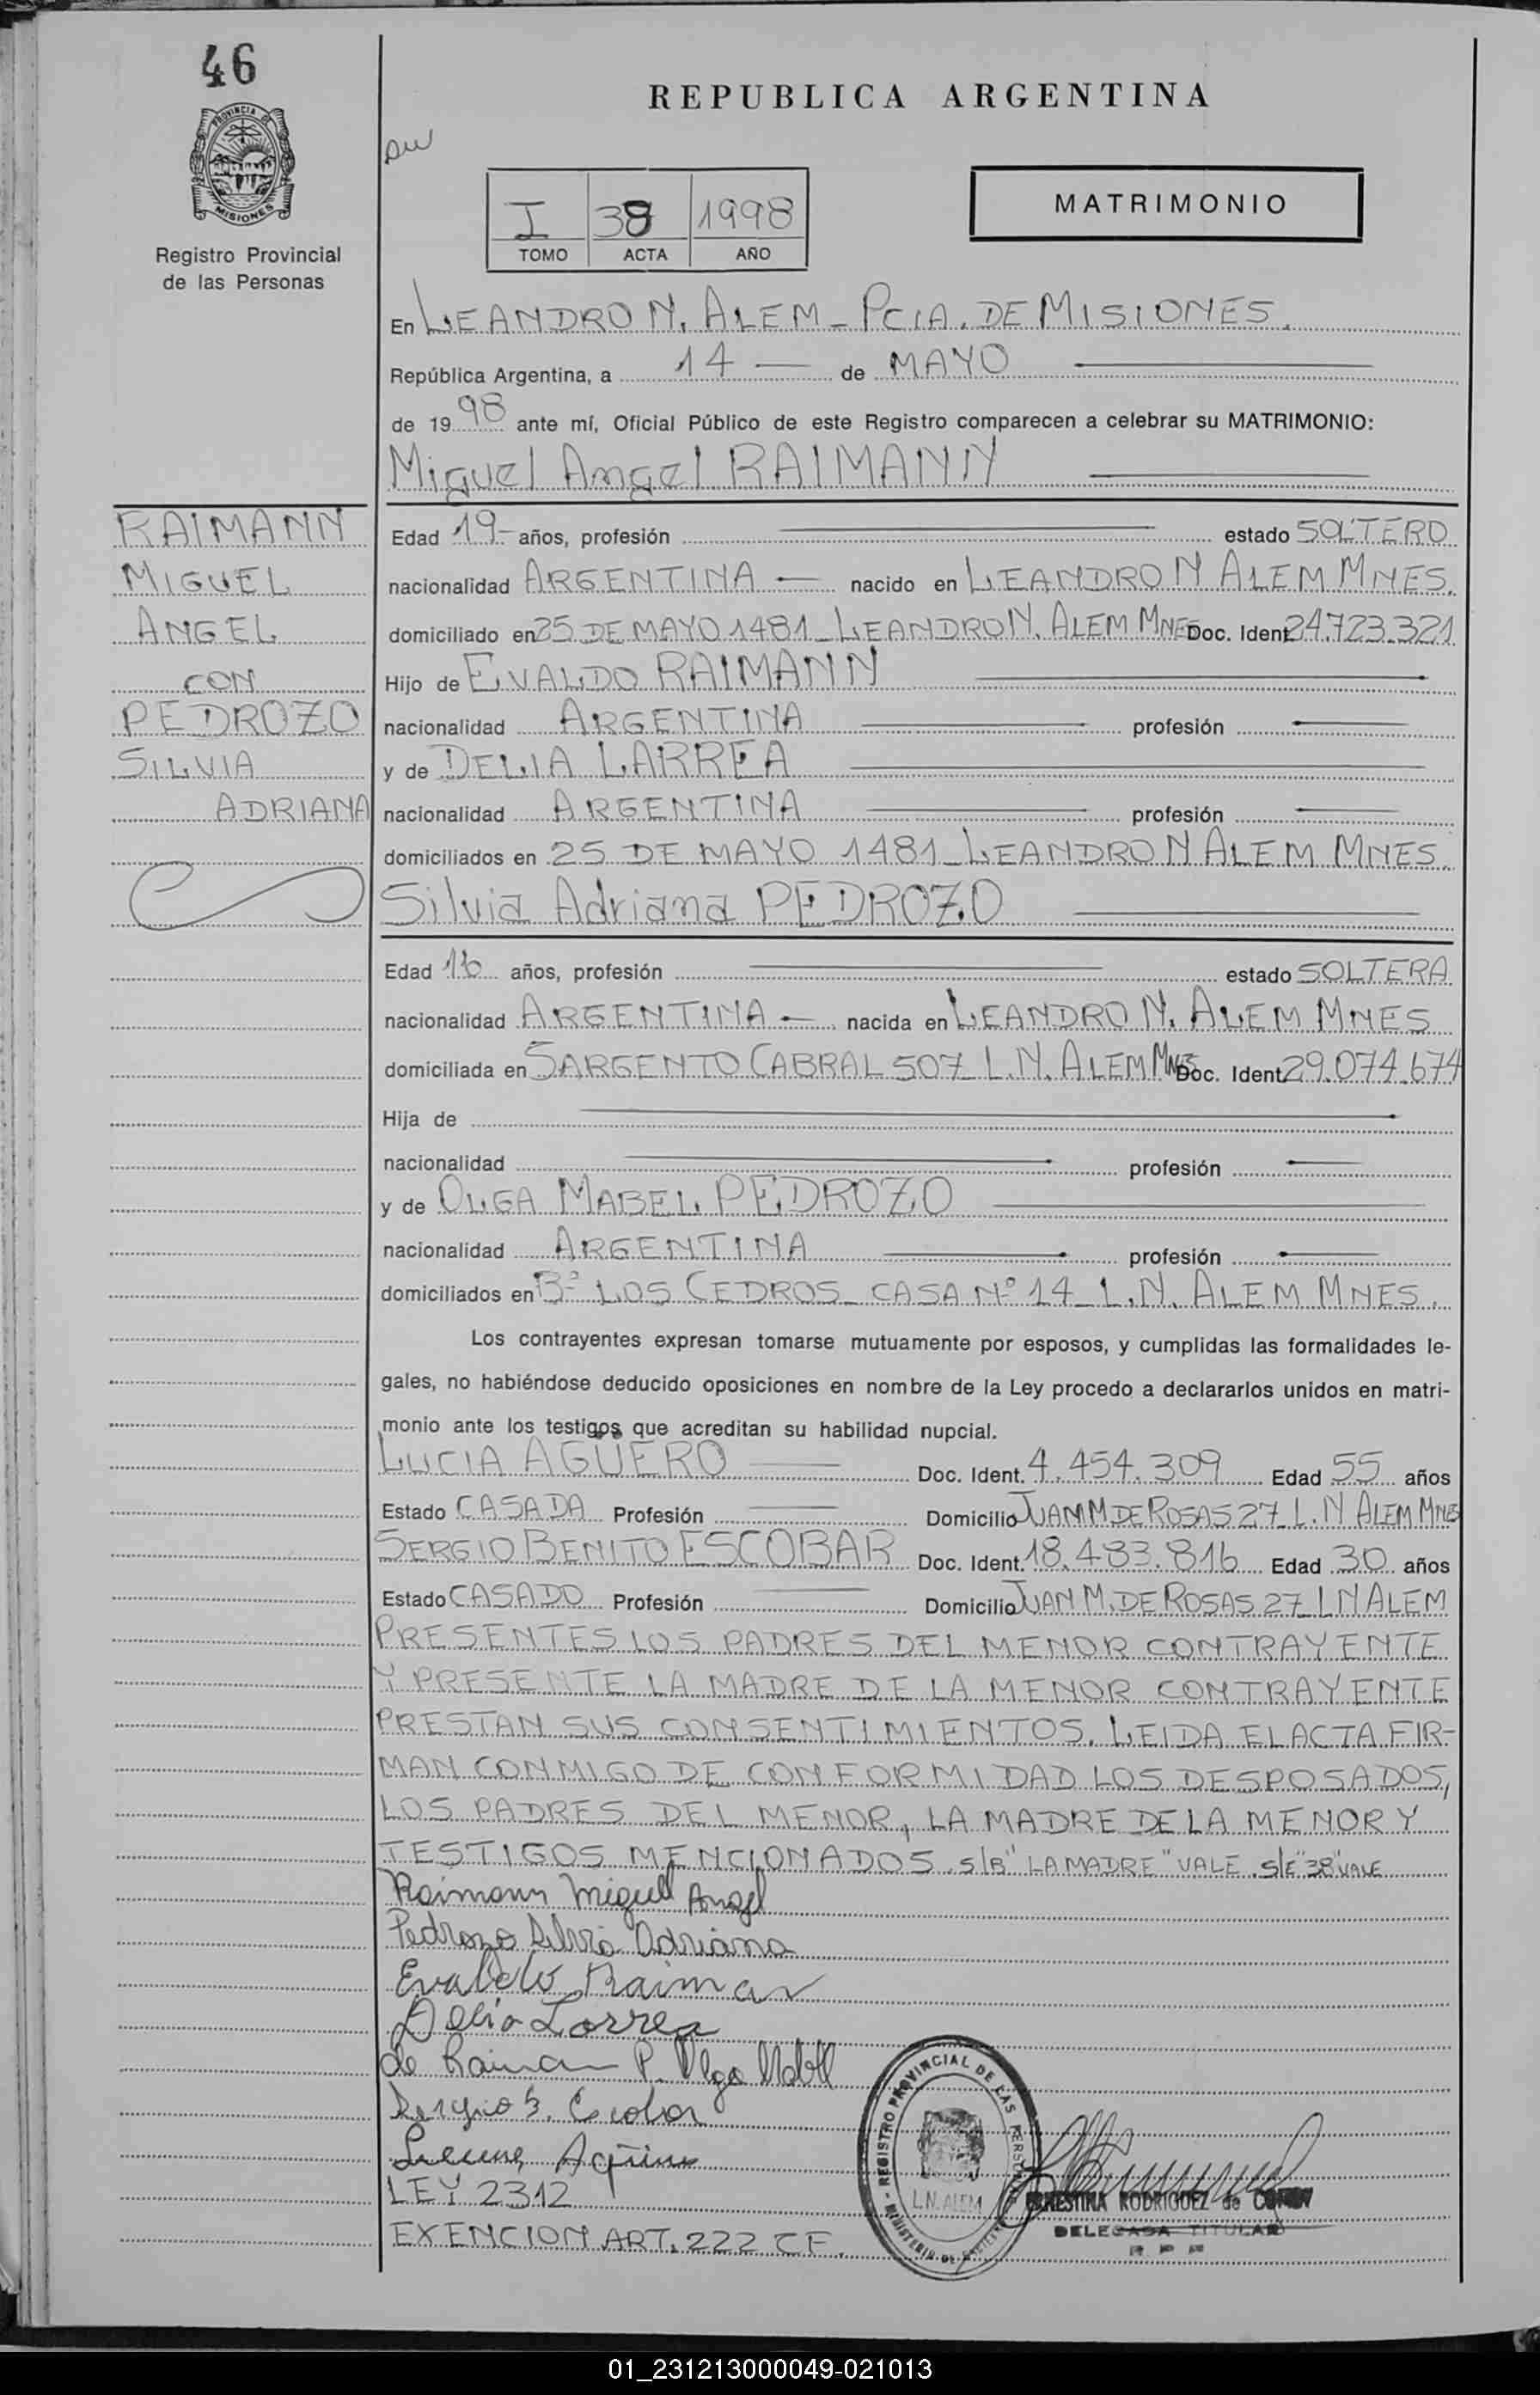 46
REPUBLICA ARGENTINA
PROVINCIA DE
MISIONES
Registro Provincial
de las Personas
I 38 1998
TOMO ACTA AÑO
MATRIMONIO
En LEANDRO N. ALEM - PCIA. DE MISIONES.
República Argentina, a 14 — de MAYO
de 1998 ante mí, Oficial Público de este Registro comparecen a celebrar su MATRIMONIO:
Miguel Angel RAIMANN
RAIMANN
MIGUEL
ANGEL
CON
PEDROZO
SILVIA
ADRIANA
Edad 19- años, profesión estado SOLTERO
nacionalidad ARGENTINA — nacido en LEANDRO N ALEM MNES.
domiciliado en 25 DE MAYO 1481 - LEANDRO N. ALEM MNES Doc. Ident. 24.723.321
Hijo de EVALDO RAIMANN
nacionalidad ARGENTINA profesión
y de DELIA LARREA
nacionalidad ARGENTINA profesión
domiciliados en 25 DE MAYO 1481 - LEANDRO N ALEM MNES.
Silvia Adriana PEDROZO
Edad 16 años, profesión estado SOLTERA
nacionalidad ARGENTINA — nacida en LEANDRO N. ALEM MNES
domiciliada en SARGENTO CABRAL 507 L.N. ALEM MNES Doc. Ident. 29.074.674
Hija de
nacionalidad profesión
y de OLGA MABEL PEDROZO
nacionalidad ARGENTINA profesión
domiciliados en Bº LOS CEDROS - CASA Nº 14 - L.N. ALEM MNES.
Los contrayentes expresan tomarse mutuamente por esposos, y cumplidas las formalidades le-
gales, no habiéndose deducido oposiciones en nombre de la Ley procedo a declararlos unidos en matri-
monio ante los testigos que acreditan su habilidad nupcial.
LUCIA AGÜERO Doc. Ident. 4.454.309 Edad 55 años
Estado CASADA Profesión Domicilio JUAN M DE ROSAS 27 L.N ALEM MNES
SERGIO BENITO ESCOBAR Doc. Ident. 18.483.816 Edad 30 años
Estado CASADO Profesión Domicilio JUAN M. DE ROSAS 27 LN ALEM
PRESENTES LOS PADRES DEL MENOR CONTRAYENTE
Y PRESENTE LA MADRE DE LA MENOR CONTRAYENTE
PRESTAN SUS CONSENTIMIENTOS. LEIDA EL ACTA FIR-
MAN CONMIGO DE CONFORMIDAD LOS DESPOSADOS,
LOS PADRES DEL MENOR, LA MADRE DE LA MENOR Y
TESTIGOS MENCIONADOS. S/B "LA MADRE" VALE. S/E "38" VALE
Raimann Miguel Angel
Pedrozo Silvia Adriana
Evaldo Raiman
Delia Larrea
de Raiman P. Olga Mabel
Sergio B. Escobar
LEY 2312
EXENCION ART. 222 CF.
REGISTRO PROVINCIAL DE LAS PERS
L.N. ALEM
ERNESTINA RODRIGUEZ de
DELEGADA TITULAR
R P P
01_231213000049-021013